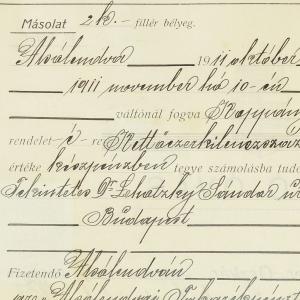 Másolat 2 k. fillér bélyeg.
Alsólendva 1911 október
1911 november hó 10-én
váltónál fogva Koppány
rendelet-é re Kettőezerkilenczszáz
értéke készpénzben tegye számolásba tudo
Tekintetes Dr Lehatzky Sándor úr
Budapest,
Fizetendő Alsólendván